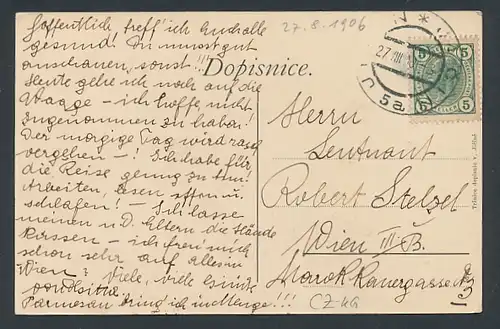 Hoffentlich, treff' ich Euch alle
gesund. Du musst gut
anschauen, sonst!!!
Heute gehe ich noch auf die
Waage – ich hoffe, nicht
zugenommen zu haben!
Der morgige Tag wird rasch
vergehen –! Ich habe für
die Reise genug zu thun!
Arbeiten, lesen essen u.
schlafen! – Ich lasse
meinen u D. Eltern die Hände
küssen – ich freu' mich
schon sehr auf alles in
Wien! Viele, viele
Parmesan bring' ich in Menge!!!
27.8.1906
Dopisnice.
27 VIII
5a
5 5
HELLER
5 5
Herrn
Leutnant
Robert Stelzel
Wien III B.
Marokkanergasse
CZ